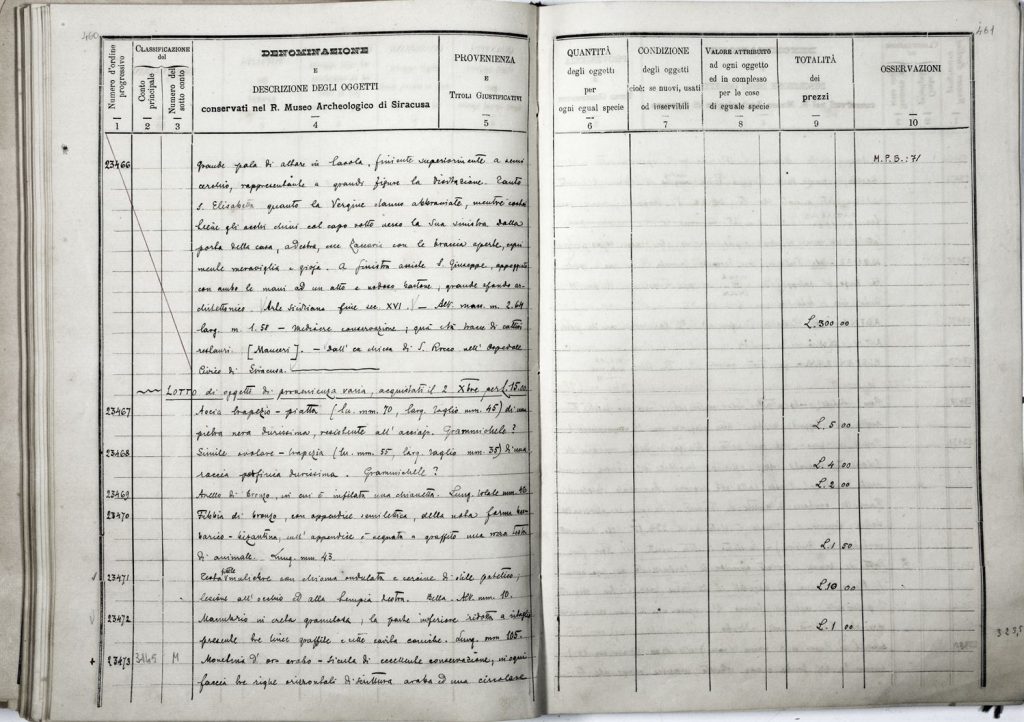 460
461
Numero d'ordine progressivo
CLASSIFICAZIONE
del
Conto principale
Numero del sotto conto
DENOMINAZIONE
E
DESCRIZIONE DEGLI OGGETTI
conservati nel R. Museo Archeologico di Siracusa
PROVENIENZA
E
TITOLI GIUSTIFICATIVI
QUANTITÀ
degli oggetti
per
ogni egual specie
CONDIZIONE
degli oggetti
cioè: se nuovi, usati
od inservibili
VALORE ATTRIBUITO
ad ogni oggetto
ed in complesso
per le cose
di eguale specie
TOTALITÀ
dei
prezzi
OSSERVAZIONI
1 2 3 4 5 6 7 8 9 10
23466 Grande pala di altare in tavola, finiente superiormente a semi M.P.B.: 71
cerchio, rappresentante a grandi figure la Visitazione. Tanto
S. Elisabetta quanto la Vergine stanno abbracciate, mentre
tiene gli occhi chini col capo volto verso la sua sinistra dalla
porta della casa, a destra, esce Zaccaria con le braccia aperte, espri
mente meraviglia e gioja. A sinistra assiste S. Giuseppe, appoggiato
con ambo le mani ad un alto e nodoso bastone, grande sfondo ar
chittetonico. Arte siciliana fine sec. XVI. — Alt. mass. m. 2.64
larg. m 1.58 — Mediocre conservazione; qua e là tracce di cattivi L. 300 00
restauri. [Mauceri]. — Dall' ex chiesa di S. Rocco nell' Ospedale
Civico di Siracusa.
LOTTO di oggetti di provenienza varia, acquistati il 2 Xbre per L. 15.00
23467 Accia trapezio - piatta (lu. mm. 70, larg. taglio mm. 45) di una
pietra nera durissima, resistente all' acciajo. Grammichele? L. 5 00
23468 Simile ovolare - trapezia (lu. mm. 55, larg. taglio mm. 35) di una
roccia porfirica durissima. Grammichele? L. 4 00
23469 Anello di bronzo, in cui è infilata una chiavetta. Lung. totale mm. L. 2 00
23470 Fibbia di bronzo, con appendice semilettica, della nota forma bar
barico - bizantina, sull' appendice è segnata a graffito una rozza testa
di animale. Lung. mm. 43. L. 1 50
23471 Testa muliebre con chioma ondulata e cercine di stile patetico;
lesione all' occhio ed alla tempia destra. Bella. Alt. mm. 10. L. 10 00
23472 Manubrio in creta granulosa, la parte inferiore ridotta a
presente tre linee graffite e sette cavità coniche. Lung. mm 105. L. 1 00
323,5
+ 23473 3145 M Monetina d' oro arabo - sicula di eccellente conservazione, in ogni
faccia tre righe orizzontali di scrittura araba ed una circolare